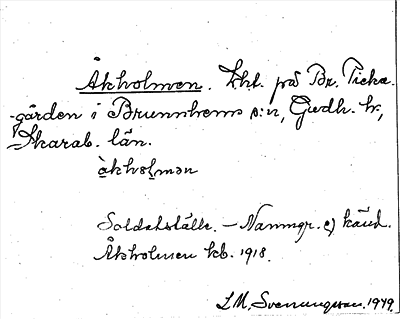 Åkholmen. Lht. på Br. Picka-
gården i Brunnhems s:n, Gudh. hd,
Skarab. län.
àkhoḷmən
Soldatställe. – Namngr. ej känd.
Åkholmen kb. 1918.
L.M. Svenungsson. 1949.